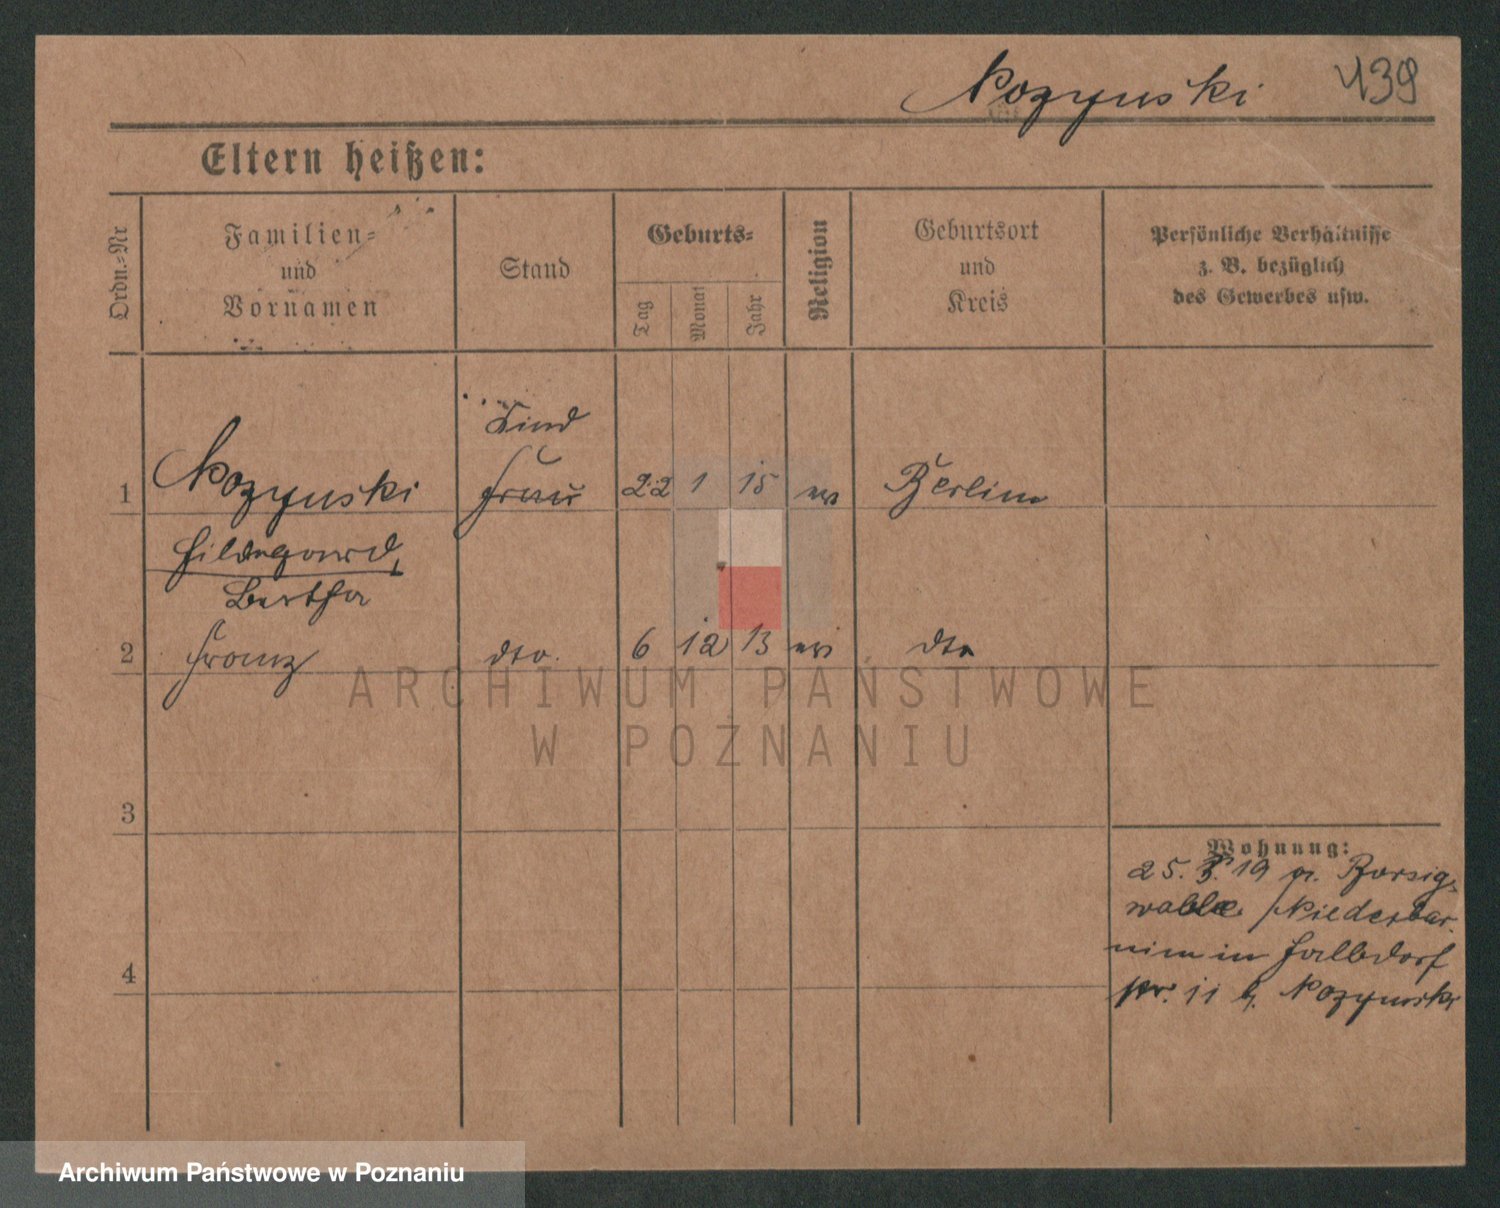 Nozynski 439
Eltern heißen:
Ordn.=Nr
Familien=
und
Vornamen
Stand
Geburts=
Tag
Monat
Jahr
Religion
Geburtsort
und
Kreis
Persönliche Verhältnisse
z. B. bezüglich
des Gewerbes usw.
Kind
1 Nozynski Frau 22 1 15 Berlin
Hildegard,
Bertha
2 Franz dto. 6 12 13 dto
ARCHIWUM PAŃSTWOWE
W POZNANIU
3
4
Wohnung:
25. 3. 19 a. Borsig-
walde /Niederbar-
nim in
11 b. Nozynski
Archiwum Państwowe w Poznaniu